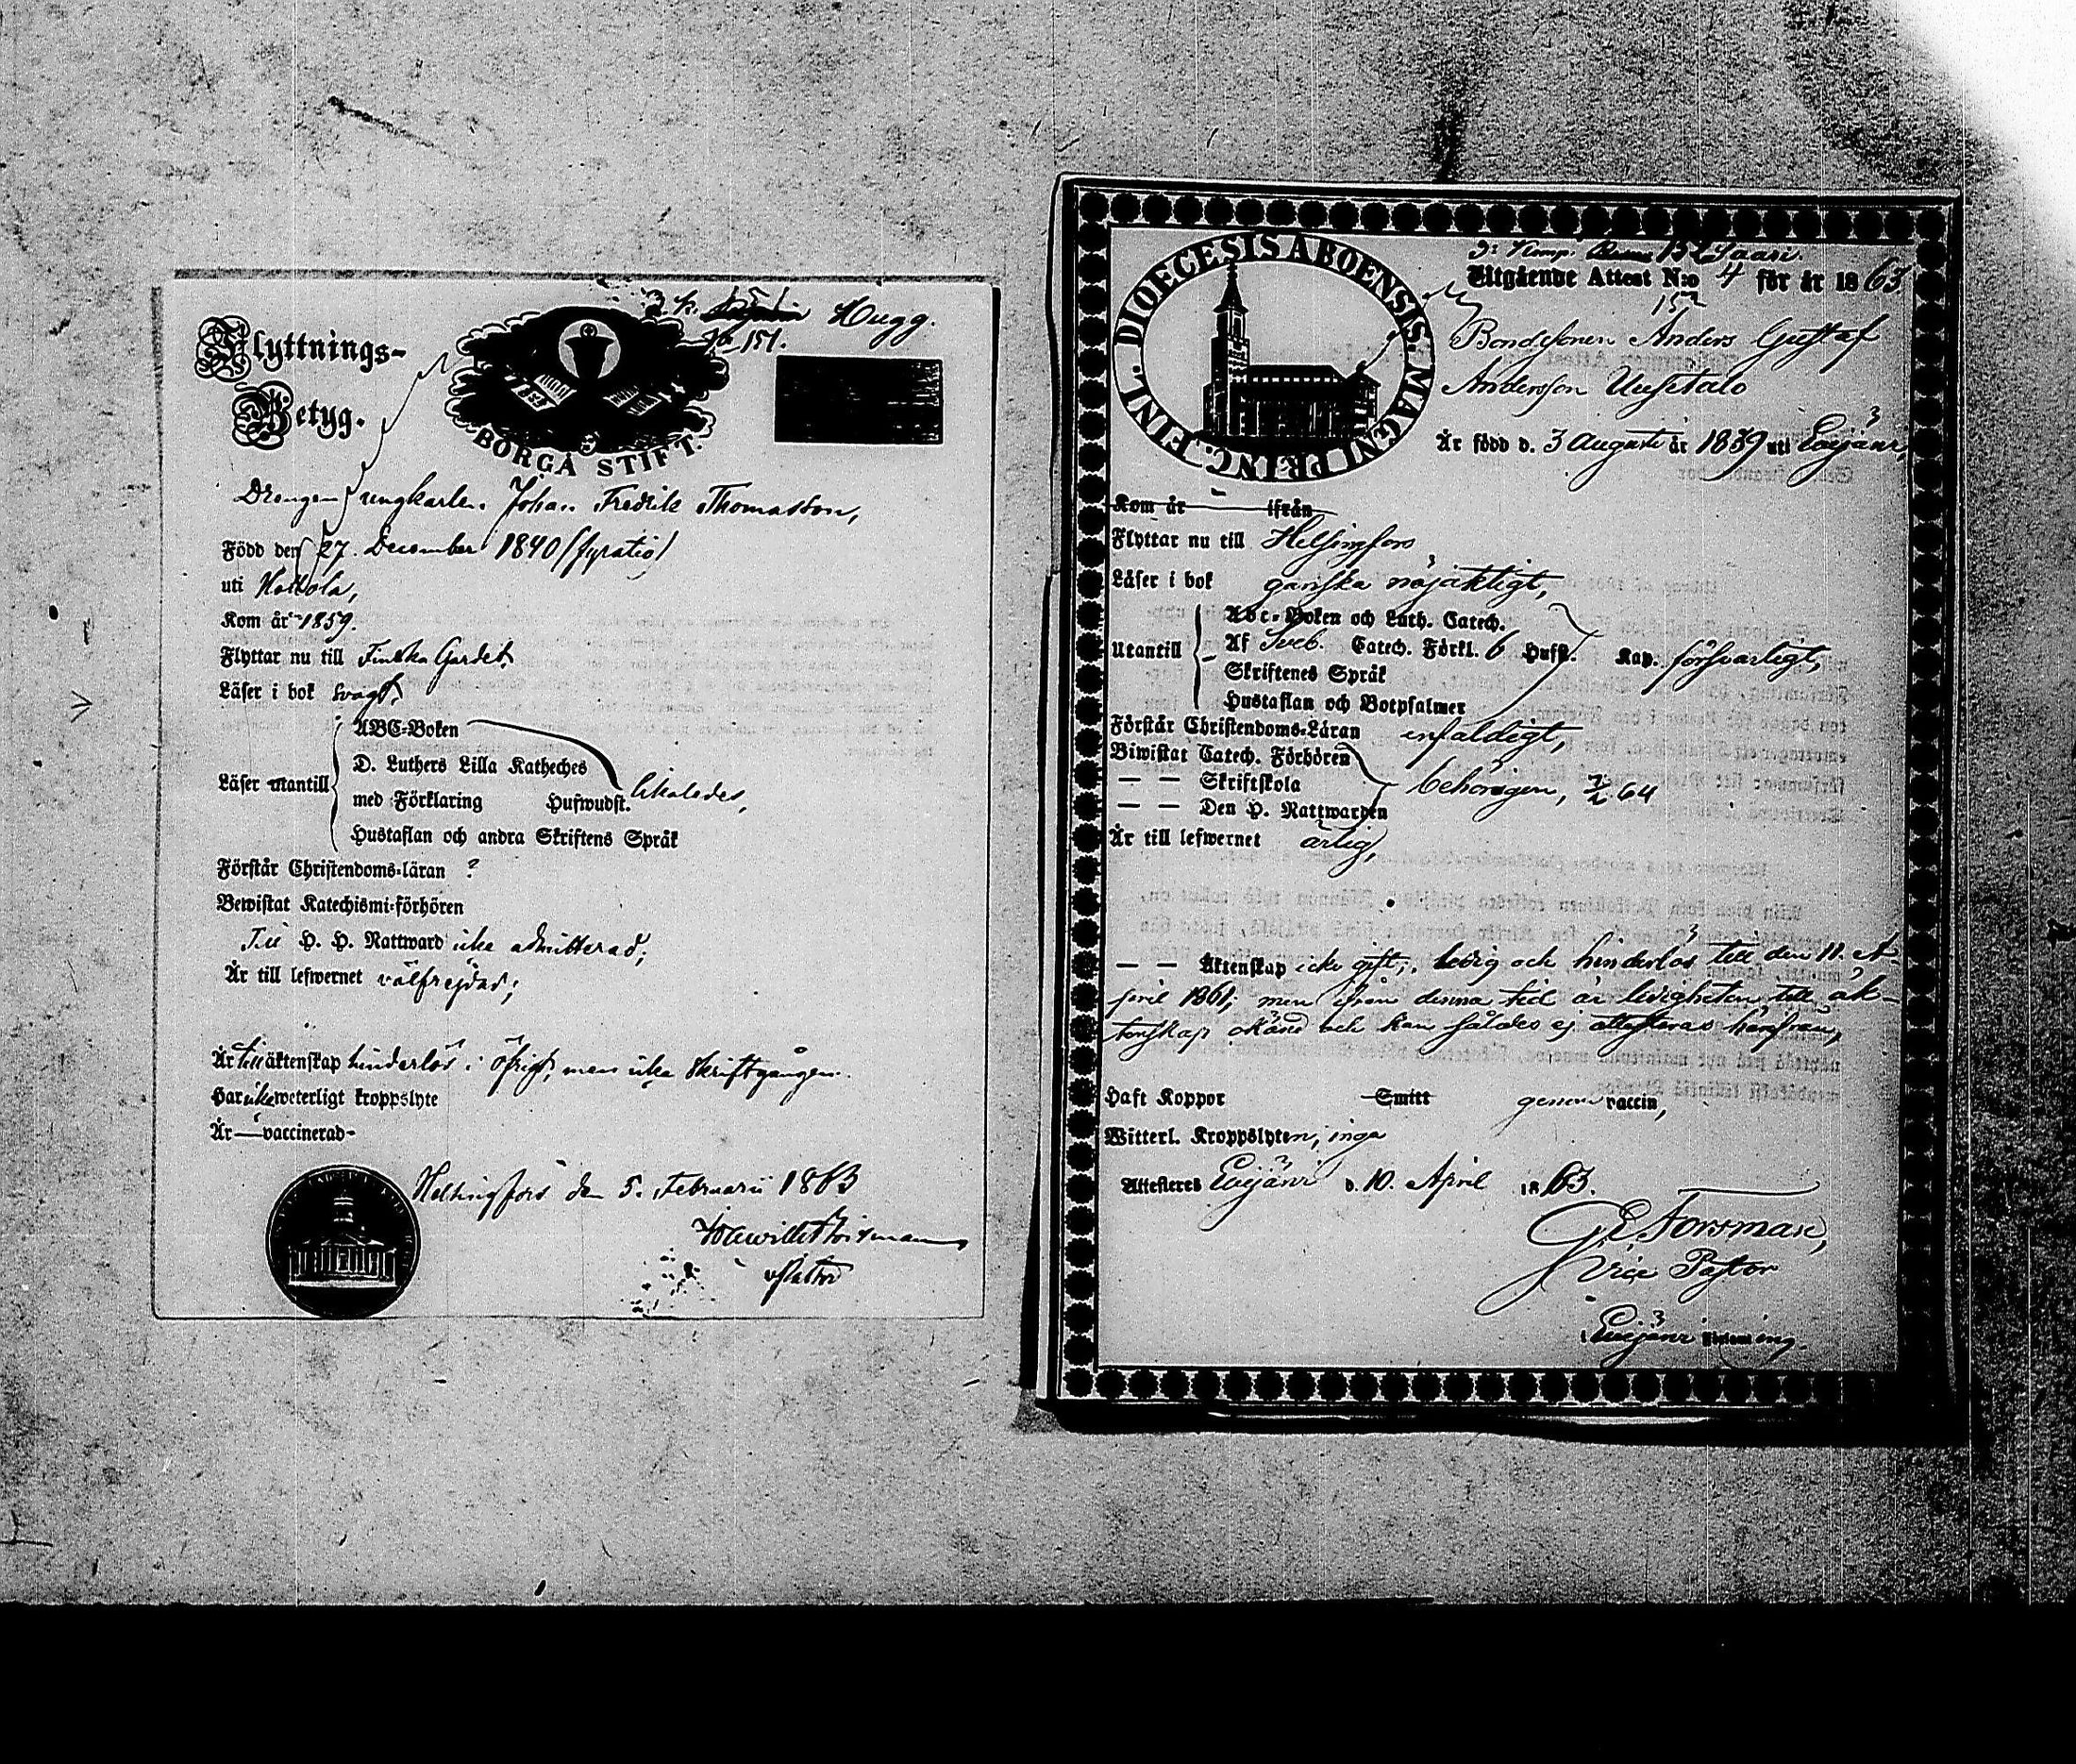 2 K. Hugg.
No 151.
Flyttnings-
Betyg.
BORGÅ STIFT.
Drengen ungkarlen Johan Fredrik Thomasson,
Född den 27. December 1840 (fyratio)
uti Hollola,
Kom år 1859.
Flyttar nu till Finska Gardet
Läser i bok svagt,
ABC-Boken
D. Luthers Lilla Katheches
Läser utantill
med Förklaring Hufwudst. likaledes,
Hustaflan och andra Skriftens Språk
Förstår Christendoms-läran ?
Bewistat Katechismi-förhören
Till H. H. Nattward icke admitterad;
Är till lefwernet välfrejdad;
Är till äktenskap hinderlös i öfrigt, men icke skriftgången.
Har icke weterligt kroppslyte
Är — vaccinerad-
Helsingfors den 5. Februarii 1863
DIOECESIS ABOENSIS MAGNI PRINC. FINL.
3: Komp. 152 Saari.
Utgående Attest N:o 4 för år 1863
152
Bondesonen Anders Gustaf
Andersson Uusitalo
Är född d. 3 Augusti år 1839 uti Ewijärvi,
Kom år — ifrån
Flyttar nu till Helsingfors
Läser i bok ganska nöjaktigt,
Abc-Boken och Luth. Catech.
Utantill Af Sveb. Catech. Förkl. 6 Hufst. Kap. försvarligt,
Skriftenes Språk
Hustaflan och Botpsalmer
Förstår Christendoms-Läran enfaldigt,
Biwistat Catech. Förhören
— — Skriftskola behörigen, 7/2 64
— — Den H. Nattwarden
Är till lefwernet ärlig,
— — Äktenskap icke gift, ledig och hinderlös till den 11. A-
pril 1861; men ifrån denna tid är ledigheten till äk-
tenskap okänd och kan således ej attesteras härifrån,
Haft Koppor Smitt genom vaccin,
Witterl. Kroppslyten, inga
Attesteras Ewijärvi d. 10. April 1863.
G E Forsman,
Vice Pastor
i Ewijärvi